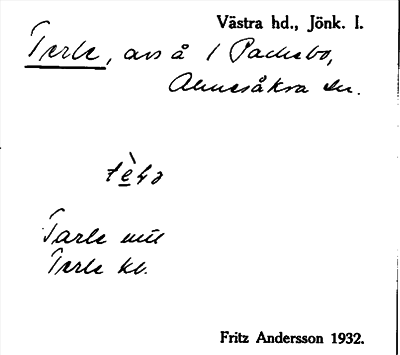 Västra hd., Jönk. l.
Terle, avs å / Packebo,
Almesåkra sn.
Tarle
Terle kl.
Fritz Andersson 1932.